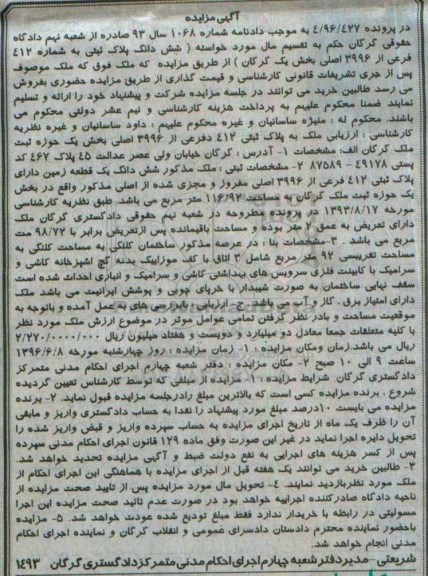 آگهی مزایده
در پرونده ۴/۹۶/۴۲۷ به موجب دادنامه شماره ۱۰۶۸ سال ۹۳ صادره از شعبه نهم دادگاه
حقوقی گرگان حکم به تقسیم مال مورد خواسته ( شش دانگ پلاک ثبتی به شماره ۴۱۲
فرعی از ۳۹۹۶ اصلی بخش یک گرگان ) از طریق مزایده که ملک فوق که ملک موصوف
پس از جری تشریفات قانونی کارشناسی و قیمت گذاری از طریق مزایده حضوری بفروش
می رسد طالبین خرید می توانند در جلسه مزایده شرکت و پیشنهاد خود را ارائه و تسلیم
نمایند ضمنا محکوم علیهم به پرداخت هزینه کارشناسی و نیم عشر دولتی محکوم می
باشند. محکوم له : منیژه ساسانیان و غیره محکوم علیهم : داود ساسانیان و غیره نظریه
کارشناسی : ارزیابی ملک به پلاک ثبتی ۴۱۲ دفرعی از ۳۹۹۶ اصلی بخش یک حوزه ثبت
ملک گرگان الف: مشخصات ۱- آدرس : گرگان خیابان ولی عصر عدالت ۴۵ پلاک ۴۶۷ کد
پستی ۴۹۱۷۸ – ۸۷۵۸۹ ۲- مشخصات ثبتی : ملک مذکور شش دانگ یک قطعه زمین دارای
پلاک ثبتی ۴۱۲ فرعی از ۳۹۹۶ اصلی مفروز و مجزی شده از اصلی مذکور واقع در بخش
یک حوزه ثبت ملک گرگان به مساحت ۱۱۶/۹۲ متر مربع می باشد. طبق نظریه کارشناسی
مورخه ۱۳۹۳/۸/۱۷ در پرونده مطروحه در شعبه نهم حقوقی دادگستری گرگان ملک
دارای تعریض به عمق ۲ متر بوده و مساحت باقیمانده پس ازتعریض برابر با ۹۸/۷۲ مت
مربع می باشد . ۳-مشخصات بنا : در عرصه مذکور ساختمان کلنگی به مساحت کلنگی به
مساحت تقریبسی ۹۲ متر مربع شامل ۳ اتاق با کف موزاییک بدنه گچ آشپزخانه کاشی و
سرامیک با کابینت فلزی سرویس های بهداشتی کاشی و سرامیک و انباری احداث شده است
سقف نهایی ساختمان به صورت شیبدار با خرپای چوبی و پوشش ایرانیت می باشد ملک
دارای امتیاز برق ، گاز و آب می باشد. ج- ارزیابی : بابررسی های به عمل آمده و باتوجه به
موقعیت مساحت و بادر نظر گرفتن تمامی عوامل موثر در موضوع ارزش ملک مورد نظر
با کلیه متعلقات جمعا معادل دو میلیارد و دویست و هفتاد میلیون ریال ۲/۲۷۰/۰۰۰/۰۰۰
ریال می باشد.زمان ومکان مزایده : ۱- زمان مزایده : روز چهارشنبه مورخه ۱۳۹۶/۶/۸
ساعت ۹ الی ۱۰ صبح ۲- مکان مزایده : دفتر شعبه چهارم اجرای احکام مدنی متمرکز
دادگستری گرگان شرایط مزایده : ۱- مزایده از مبلغی که توسط کارشناس تعیین گردیده
شروع . برنده مزایده کسی است که بالاترین مبلغ رادرجلسه مزایده قبول نماید. ۲- برنده
مزایده می بایست ۱۰درصد مبلغ مورد پیشنهاد را نقدا به حساب دادگستری واریز و مابقی
آن را ظرف یک ماه از تاریخ اجرای مزایده به حساب سپرده واریز و قبض واریز شده را
تحویل دایره اجرا نماید در غیر این صورت وفق ماده ۱۲۹ قانون اجرای احکام مدنی سپرده
پس از کسر هزینه های اجرایی به نفع دولت ضبط و آگهی مزایده تجدید خواهد شد.
۳- طالبین خرید می توانند یک هفته قبل از اجرای مزایده با هماهنگی این اجرای احکام از
ملک مورد نظربازدید نمایند. ۴- تحویل مال مورد مزایده پس از تایید صحت مزایده از
ناحیه دادگاه صادرکننده اجراییه خواهد بود در صورت عدم تائید صحت مزایده این اجرا
مسولیتی در رابطه با خریدار ندارد فقط مبلغ تودیع شده عودت خواهد شد. ۵- مزایده
باحضور نماینده محترم دادستان دادسرای عمومی و انقلاب گرگان و نماینده اجرای احکام
مدنی انجام خواهد شد.
شریعتی – مدیر دفتر شعبه چهارم اجرای احکام مدنی متمرکز دادگستری گرگان ۱۴۹۳